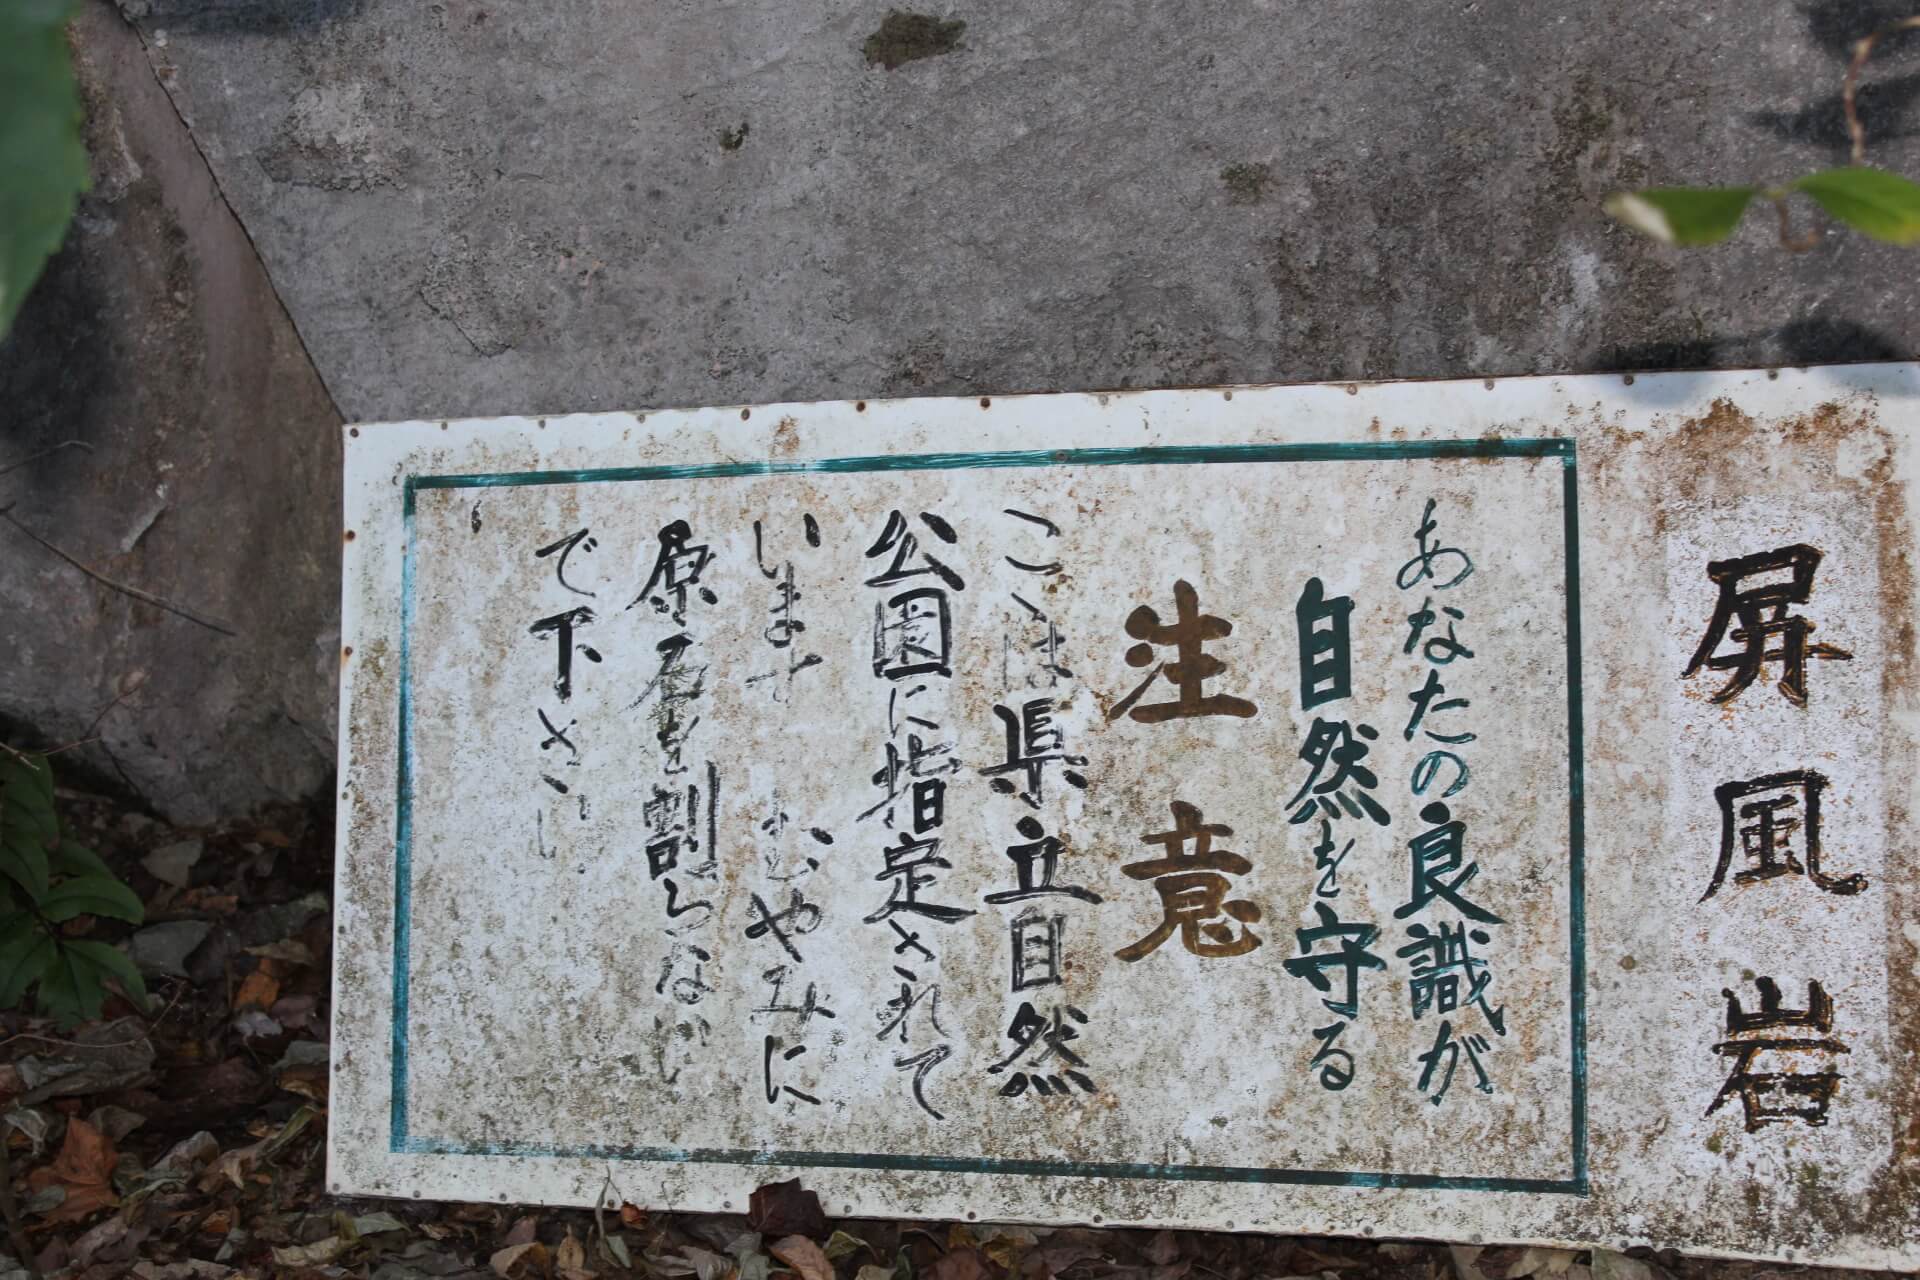 屏風岩
あなたの良識が
自然を守る
注意
ここは県立自然
公園に指定されて
います むやみに
原石を割らない
で下さい